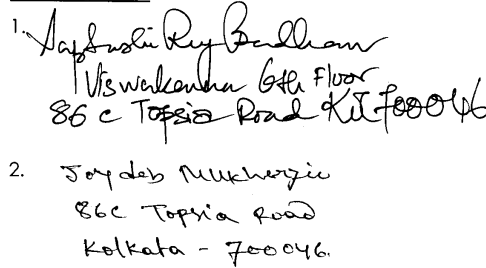 1. Saptarshi Roy Bardhan
Viswakarma 6th Floor
86 C Topsia Road Kol 700046
2. Joydeb Mukherjie
86C Topsia Road
Kolkata - 700046.